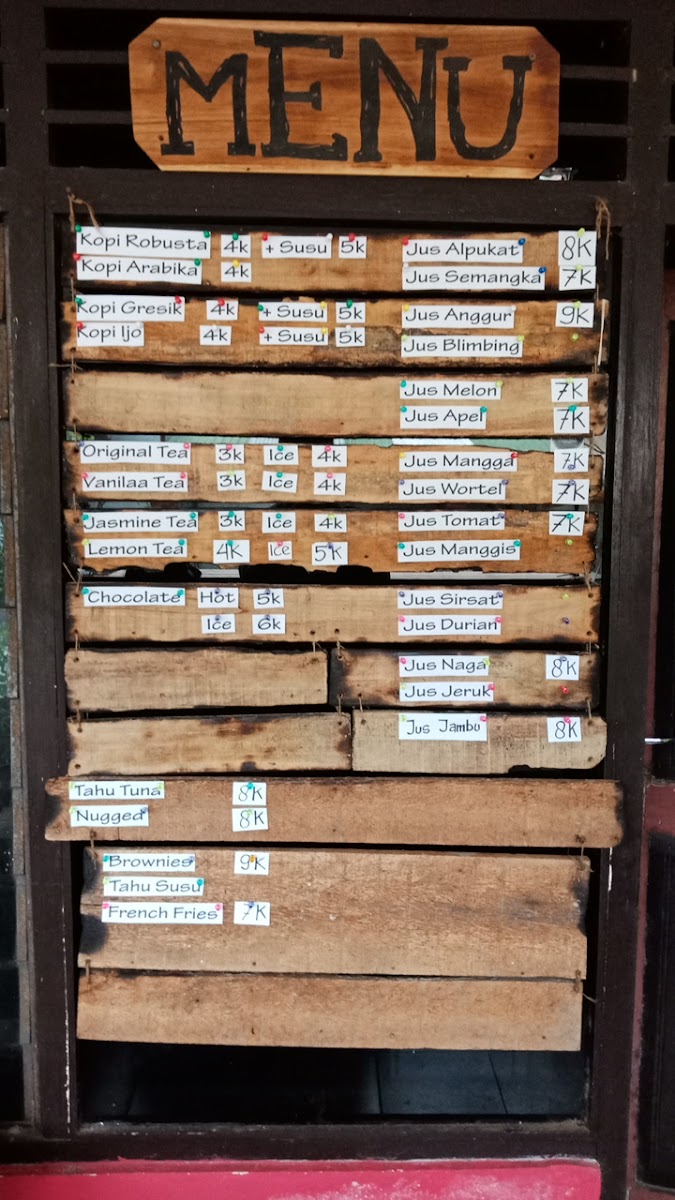 MENU
Kopi Robusta 4k + Susu 5k Jus Alpukat 8K
Kopi Arabika 4k Jus Semangka 7K
Kopi Gresik 4k + Susu 5k Jus Anggur 9K
Kopi Ijo 4k + Susu 5k Jus Blimbing
Jus Melon 7K
Jus Apel 7K
Original Tea 3k Ice 4k Jus Mangga 7K
Vanilaa Tea 3k Ice 4k Jus Wortel 7K
Jasmine Tea 3k Ice 4k Jus Tomat 7K
Lemon Tea 4K Ice 5K Jus Manggis
Chocolate Hot 5k Jus Sirsat
Ice 6k Jus Durian
Jus Naga 8K
Jus Jeruk
Jus Jambu 8K
Tahu Tuna 8K
Nugged 8K
Brownies 9K
Tahu Susu
French Fries 7K